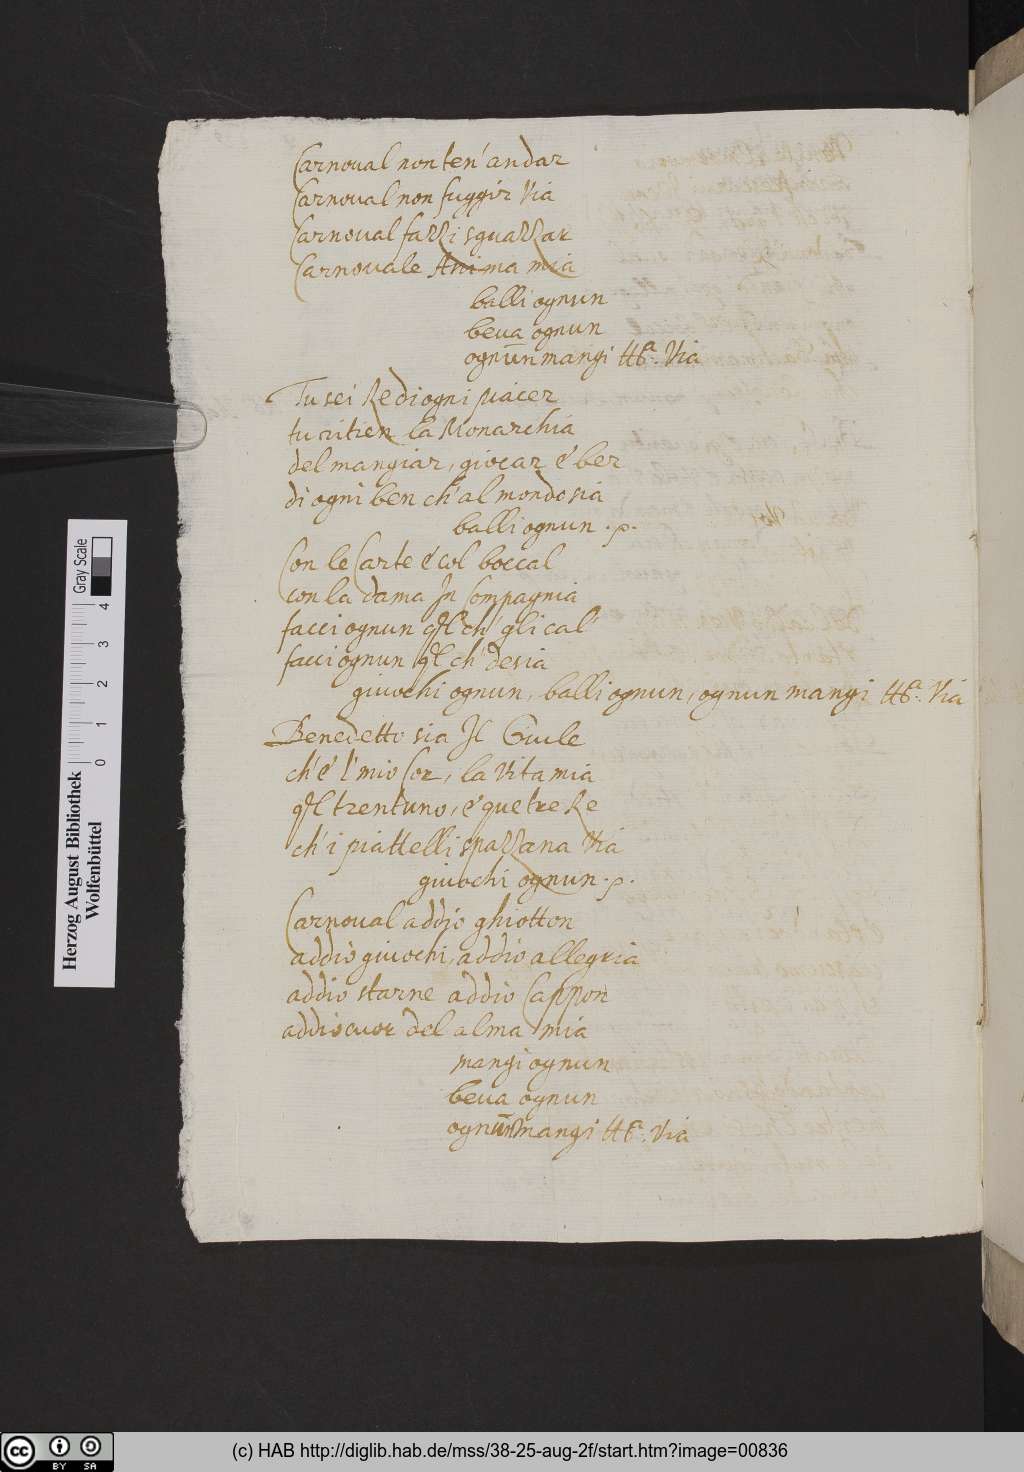 Carnoual non ten' andar
Carnoual non fuggir via
Carnoual fazzi sguazzar
Carnouale Anima mia
balli ognun
beua ognun
ognun mangi Via
Tu sei Re di ogni piacer
tu ritien la Monarchia
del mangiar, giocar é ber
di ogni ben ch' al mondo sia
balli ognun .p.
Con le Carte é col boccal
con la dama In Compagnia
facci ognun ch' gli cal'
facci ognun ch' desia
giuochi ognun, balli ognun, ognun mangi Via
Benedetto sia Il Giule
ch' é l' mio Cor, la Vita mia
trentuno, é que tre Re
ch' i piattelli spazzana Via
giuochi ognun .p.
Carnoual addio ghiotton
addio giuochi, addio allegria
addio starne addio Cappon
addio cuor del alma mia
mangi ognun
beua ognun
ognun mangi Via
Herzog August Bibliothek
Wolfenbüttel
Gray Scale
0 1 2 3 4
cc BY SA
(c) HAB http://diglib.hab.de/mss/38-25-aug-2f/start.htm?image=00836